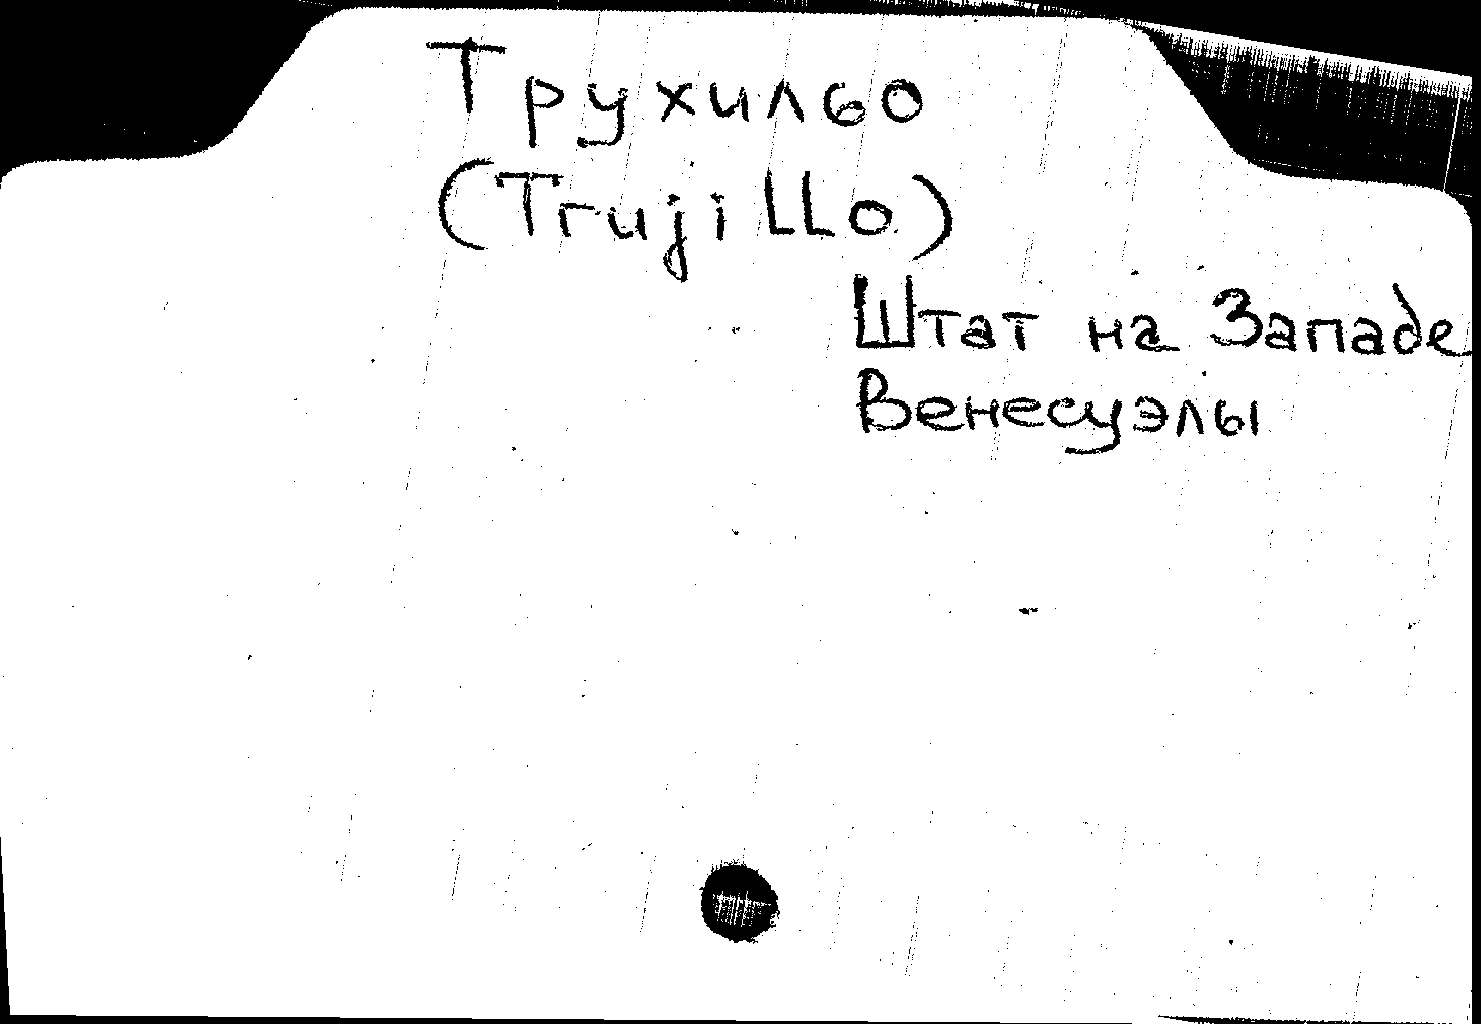 Трухильо
(Trujillo)
Штат на Западе
Венесуэлы